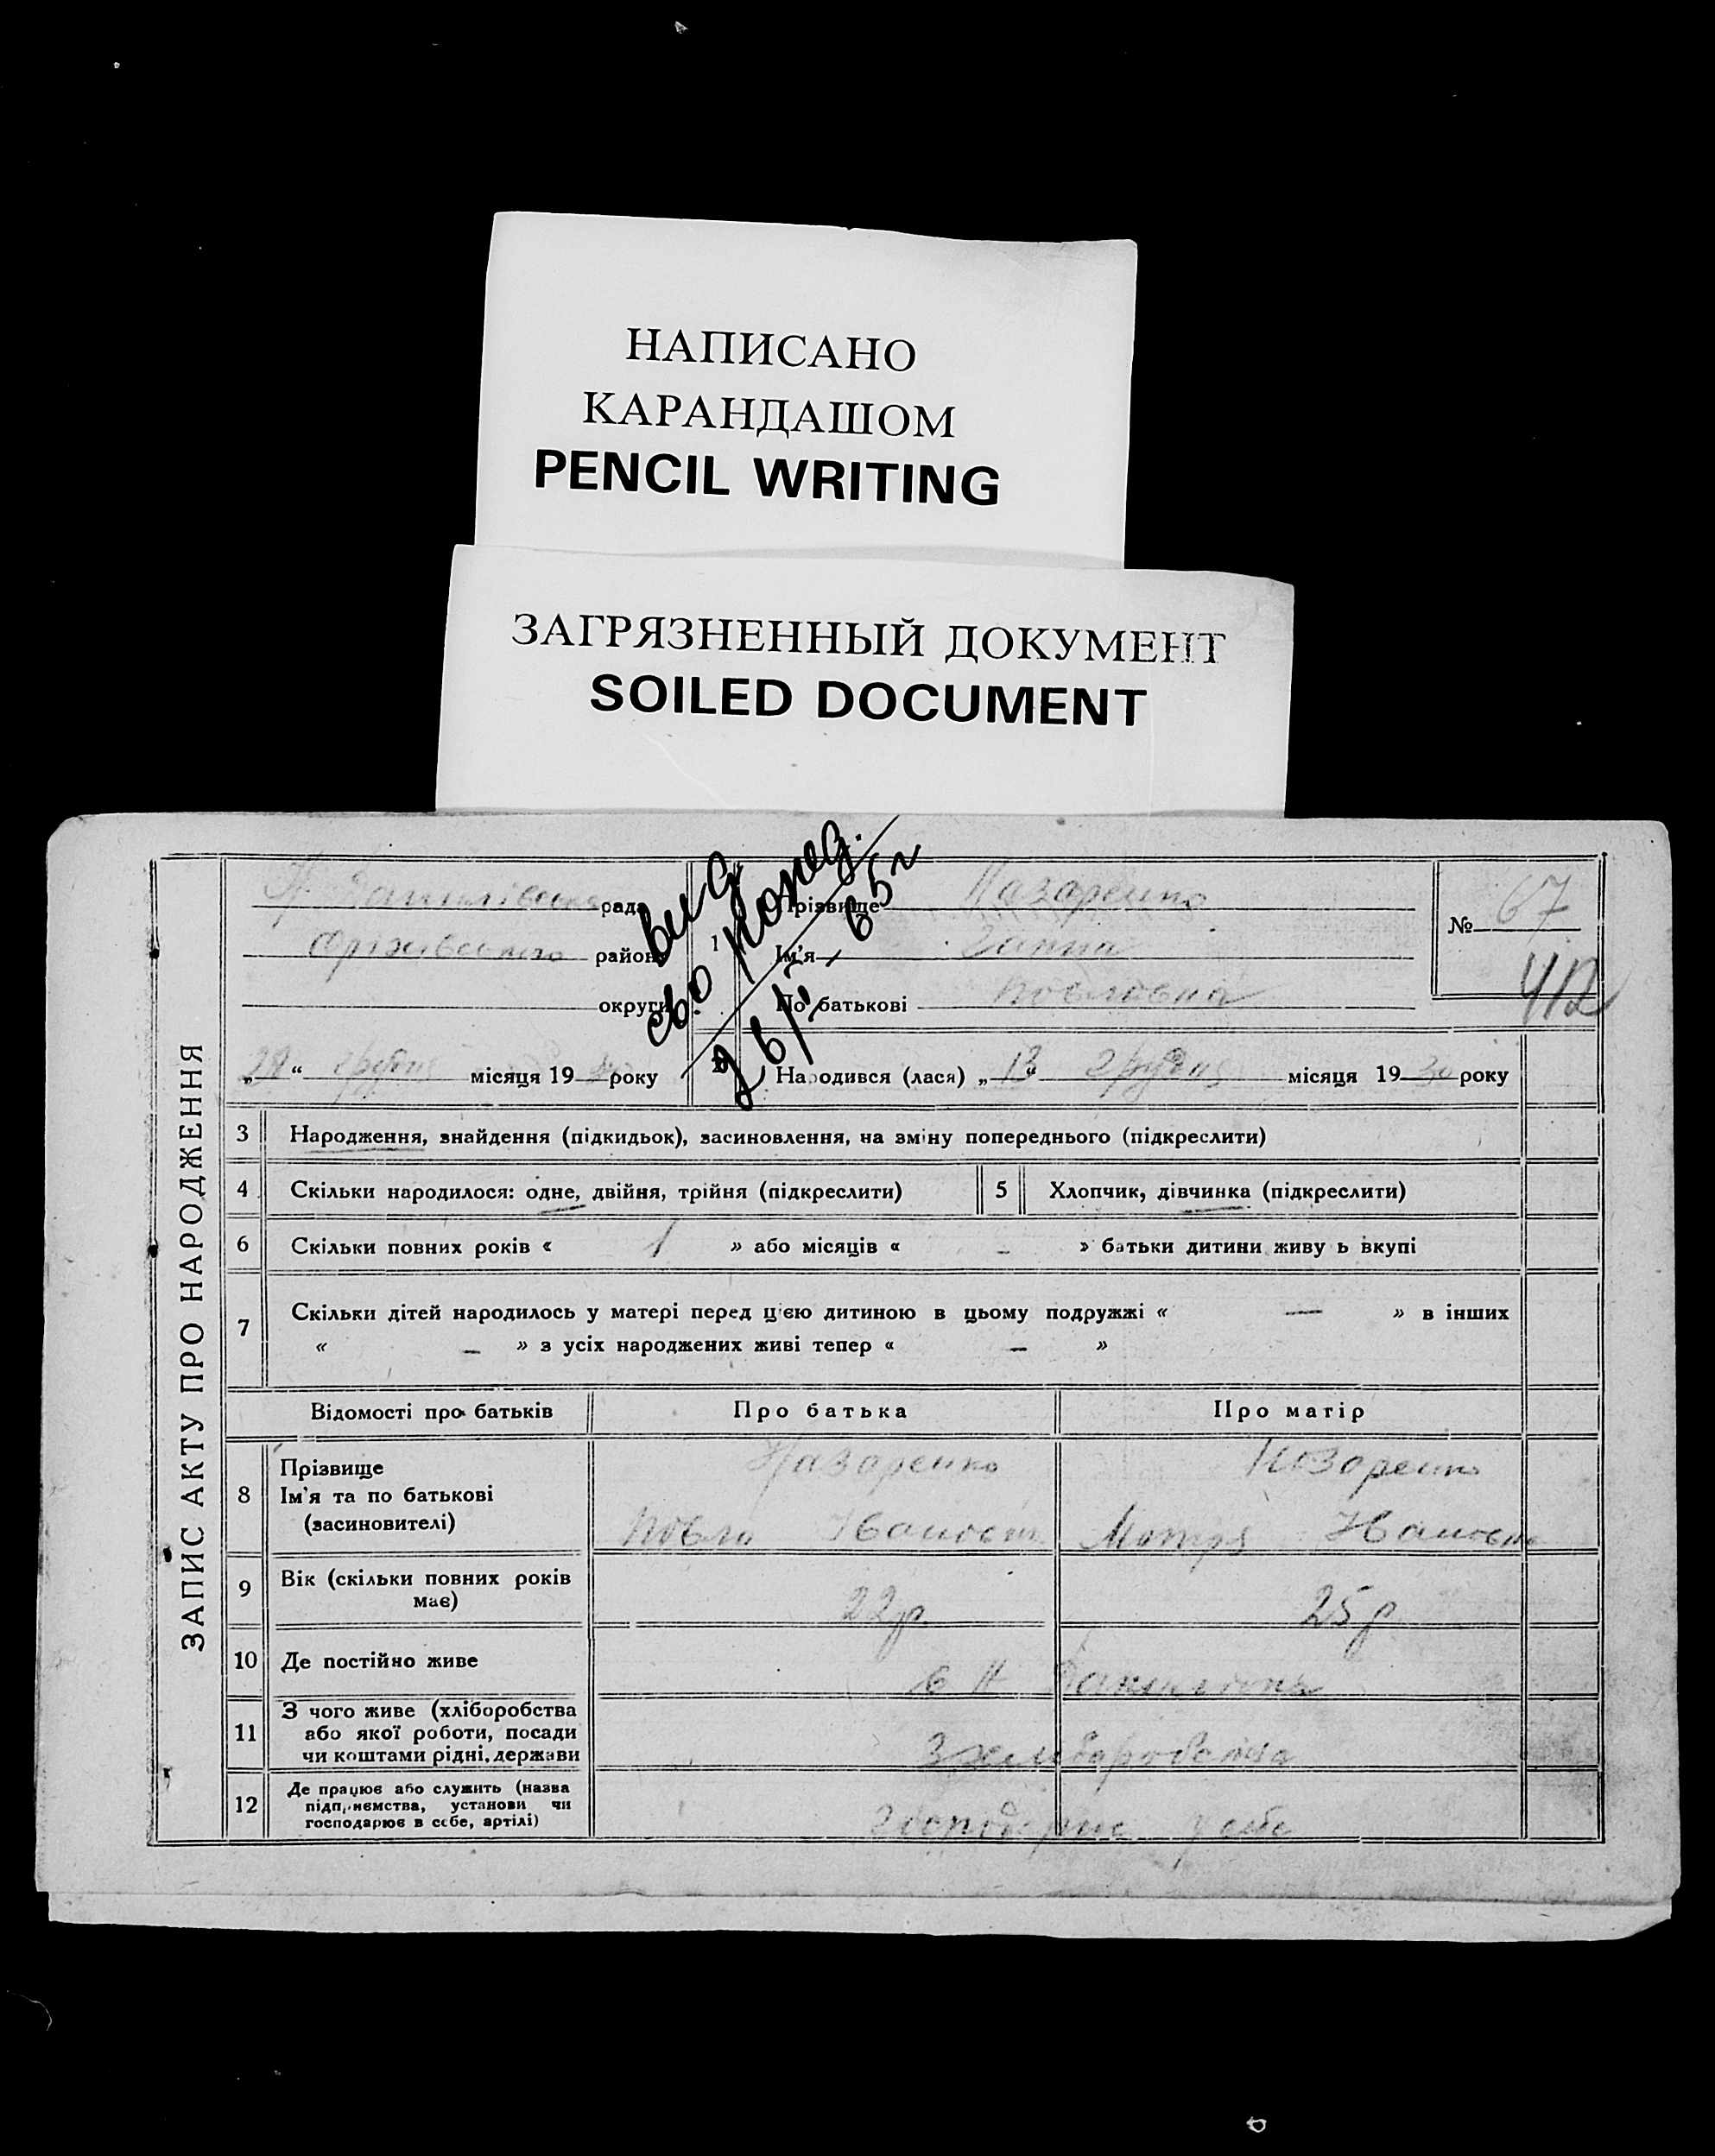 НАПИСАНО
КАРАНДАШОМ
PENCIL WRITING
ЗАГРЯЗНЕННЫЙ ДОКУМЕНТ
SOILED DOCUMENT
ЗАПИС АКТУ ПРО НАРОДЖЕННЯ
рада
району
округи
„28“ грудня місяця 19 року
1 Прізвище Назаренко
Ім'я Ганна
По батькові Повловна
№ 67
412
вид
сво
2 Народився (лася) „13 грудня місяця 1930 року
3 Народження, знайдення (підкидьок), засиновлення, на зміну попереднього (підкреслити)
4 Скільки народилося: одне, двійня, трійня (підкреслити) 5 Хлопчик, дівчинка (підкреслити)
6 Скільки повних років « 1 » або місяців « - » батьки дитини живу ь вкупі
7 Скільки дітей народилось у матері перед цією дитиною в цьому подружжі « — » в інших
« - » з усіх народжених живі тепер « - »
Відомості про батьків Про батька Про матір
8 Прізвище Назаренко Назаренко
Ім'я та по батькові
(засновителі) Повло Іванович Мотря Івановна
9 Вік (скільки повних років має) 22р 25р
10 Де постійно живе с Н
11 З чого живе (хліборобства
або якої роботи, посади
чи коштами рідні, держави
З хліборобства
12 Де працює або служить (назва
підприємства, установи чи
господарює в себе, артілі)
у себе